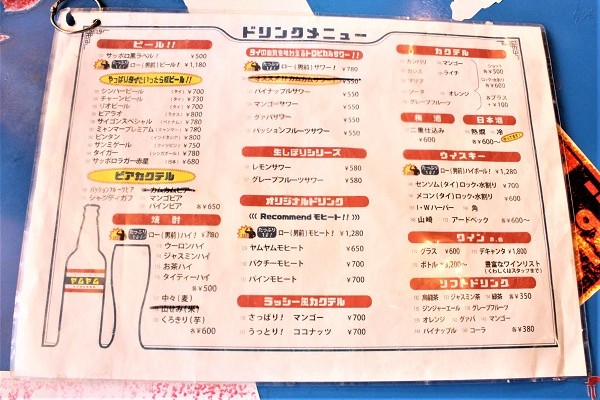 ドリンクメニュー
ビール!!
サッポロ黒ラベル! ¥500
たっぷり1ℓ! ロー(男前)ビール! ¥1,180
やっぱりタイといったら瓶ビール!!
シンハービール (タイ) ¥700
チャーンビール (タイ) ¥730
リオビール (タイ) ¥700
ビアラオ (ラオス) ¥800
サイゴンスペシャル (ベトナム) ¥780
ミャンマープレミアム (ミャンマー) ¥780
ビンタン (インドネシア) ¥800
サンミゲール (フィリピン) ¥750
タイガー (シンガポール) ¥780
サッポロラガー赤星 (日本) ¥680
ビアカクテル
パッションフルーツビア
カムカムビアー
シャンディガフ
マンゴビア
パインビア
各¥650
焼酎
たっぷり1ℓ! ロー(男前)ハイ! ¥780
ウーロンハイ
ジャスミンハイ
お茶ハイ
タイティーハイ
各¥500
中々(麦)
山せみ(米)
くろきり(芋)
各¥600
タイの自気を味わえるトロピカルサワー!!
たっぷり1ℓ! ロー(男前)サワー! ¥780
オススメ!!カムカムサワー ¥550
パイナップルサワー ¥550
マンゴーサワー ¥550
グァバサワー ¥550
パッションフルーツサワー ¥550
生しぼりシリーズ
レモンサワー ¥580
グレープフルーツサワー ¥580
オリジナルドリンク
《《 Recommend モヒート!! 》》
たっぷり1ℓ! ロー(男前)モヒート! ¥1,280
ヤムヤムモヒート ¥650
パクチーモヒート ¥700
パインモヒート ¥700
ラッシー風カクテル
さっぱり! マンゴー ¥700
うっとり! ココナッツ ¥700
カクテル
カンパリ
マンゴー
カシス
ライチ
ソーダ
オレンジ
グレープフルーツ
ショット
各¥500
ロック・水割り
各¥600
各プラス
+¥100
梅酒
二重仕込み
¥600
日本酒
熱燗 冷
各¥600〜
ウィスキー
たっぷり1ℓ! ロー(男前)ハイボール! ¥1,280
センソム(タイ)ロック・水割り ¥700
メコン(タイ)ロック・水割り ¥600
I・Wハーパー 角
山崎 アードベック 各¥600〜
ワイン 赤・白
グラス ¥600 デキャンタ ¥1,800
ボトル ,200〜 豊富なワインリスト
(くわしくはスタッフまで)
ソフトドリンク
烏龍茶 ジャスミン茶 緑茶 各¥350
ジンジャーエール グレープフルーツ
オレンジ グァバ マンゴー
パイナップル コーラ 各¥380